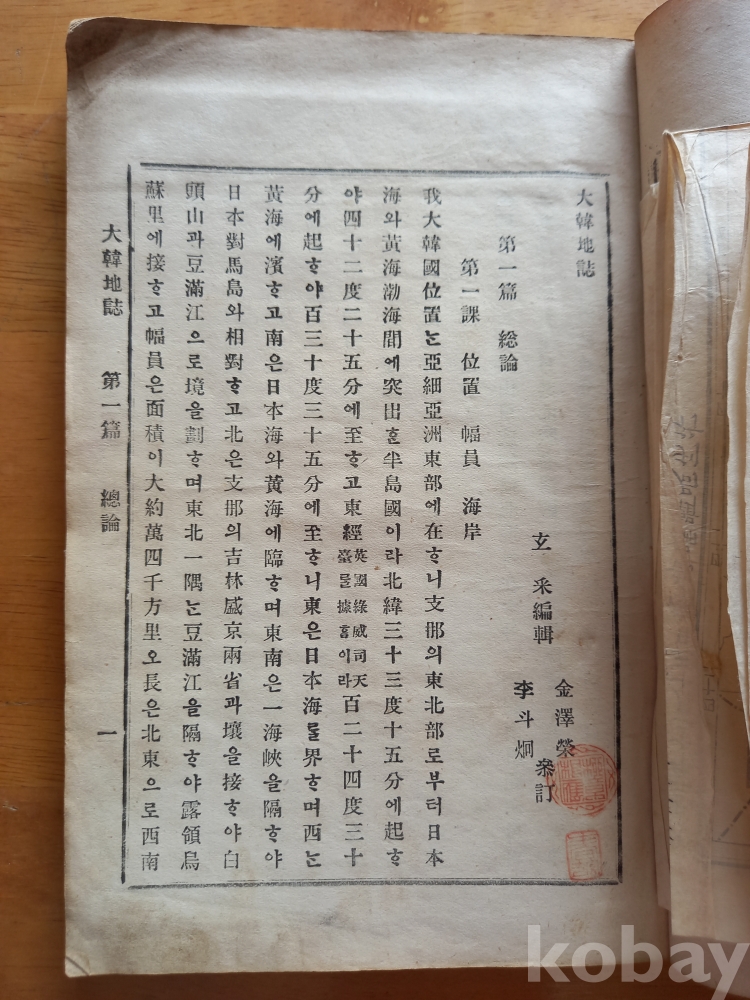 大韓地誌
玄采編輯
金澤榮
李斗烱
叅訂
第一篇 總論
第一課 位置 幅員 海岸
我大韓國位置ᄂᆞᆫ亞細亞洲東部에在ᄒᆞ니支那의東北部로부터日本
海와黃海渤海間에突出ᄒᆞᆫ半島國이라北緯三十三度十五分에起ᄒᆞ
야四十二度二十五分에至ᄒᆞ고東經英國綠威司天臺ᄅᆞᆯ據ᄒᆞᆷ이라百二十四度三十
分에起ᄒᆞ야百三十度三十五分에至ᄒᆞ니東은日本海ᄅᆞᆯ界ᄒᆞ며西ᄂᆞᆫ
黃海에濱ᄒᆞ고南은日本海와黃海에臨ᄒᆞ며東南은一海峽을隔ᄒᆞ야
日本對馬島와相對ᄒᆞ고北은支那의吉林盛京兩省과壤을接ᄒᆞ야白
頭山과豆滿江으로境을劃ᄒᆞ며東北一隅ᄂᆞᆫ豆滿江을隔ᄒᆞ야露領烏
蘇里에接ᄒᆞ고幅員은面積이大約萬四千方里오長은北東으로西南
大韓地誌 第一篇 總論 一
kobay